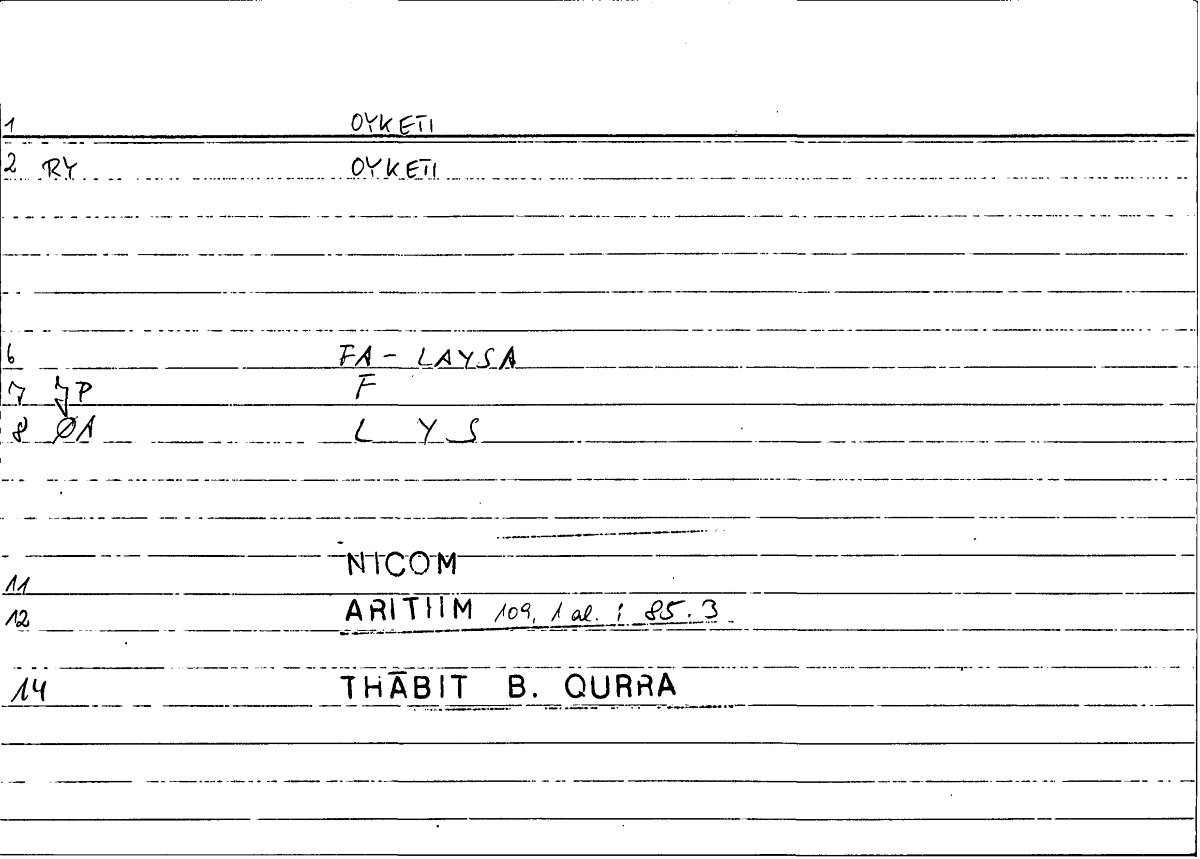 1 OYKETI
2 RY OYKETI
6 FA - LAYSA
7 P F
8 ØA L Y S
11 NICOM
12 ARITIIM 109, 1 al. ; 85.3
14 THĀBIT B. QURRA